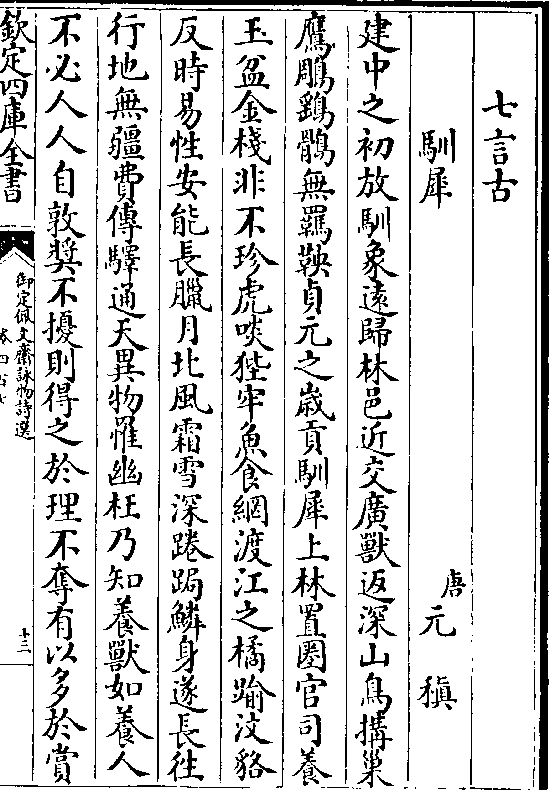 七言古
馴犀　唐　元稹
建中之初放馴象遠歸林邑近交廣獸返深山鳥搆巢
鷹鵰鷂鶻無羈鞅貞元之歲貢馴犀上林置圈官司養
玉盆金棧非不珍虎啖狴牢魚食網渡江之橘踰汶貉
反時易性安能長臘月北風霜雪深踡跼鱗身遂長往
行地無疆費傳驛通天異物罹幽枉乃知養獸如養人
不必人人自敦奬不擾則得之於理不奪有以多於賞
欽定四庫全書
御定佩文齋詠物詩選
十三